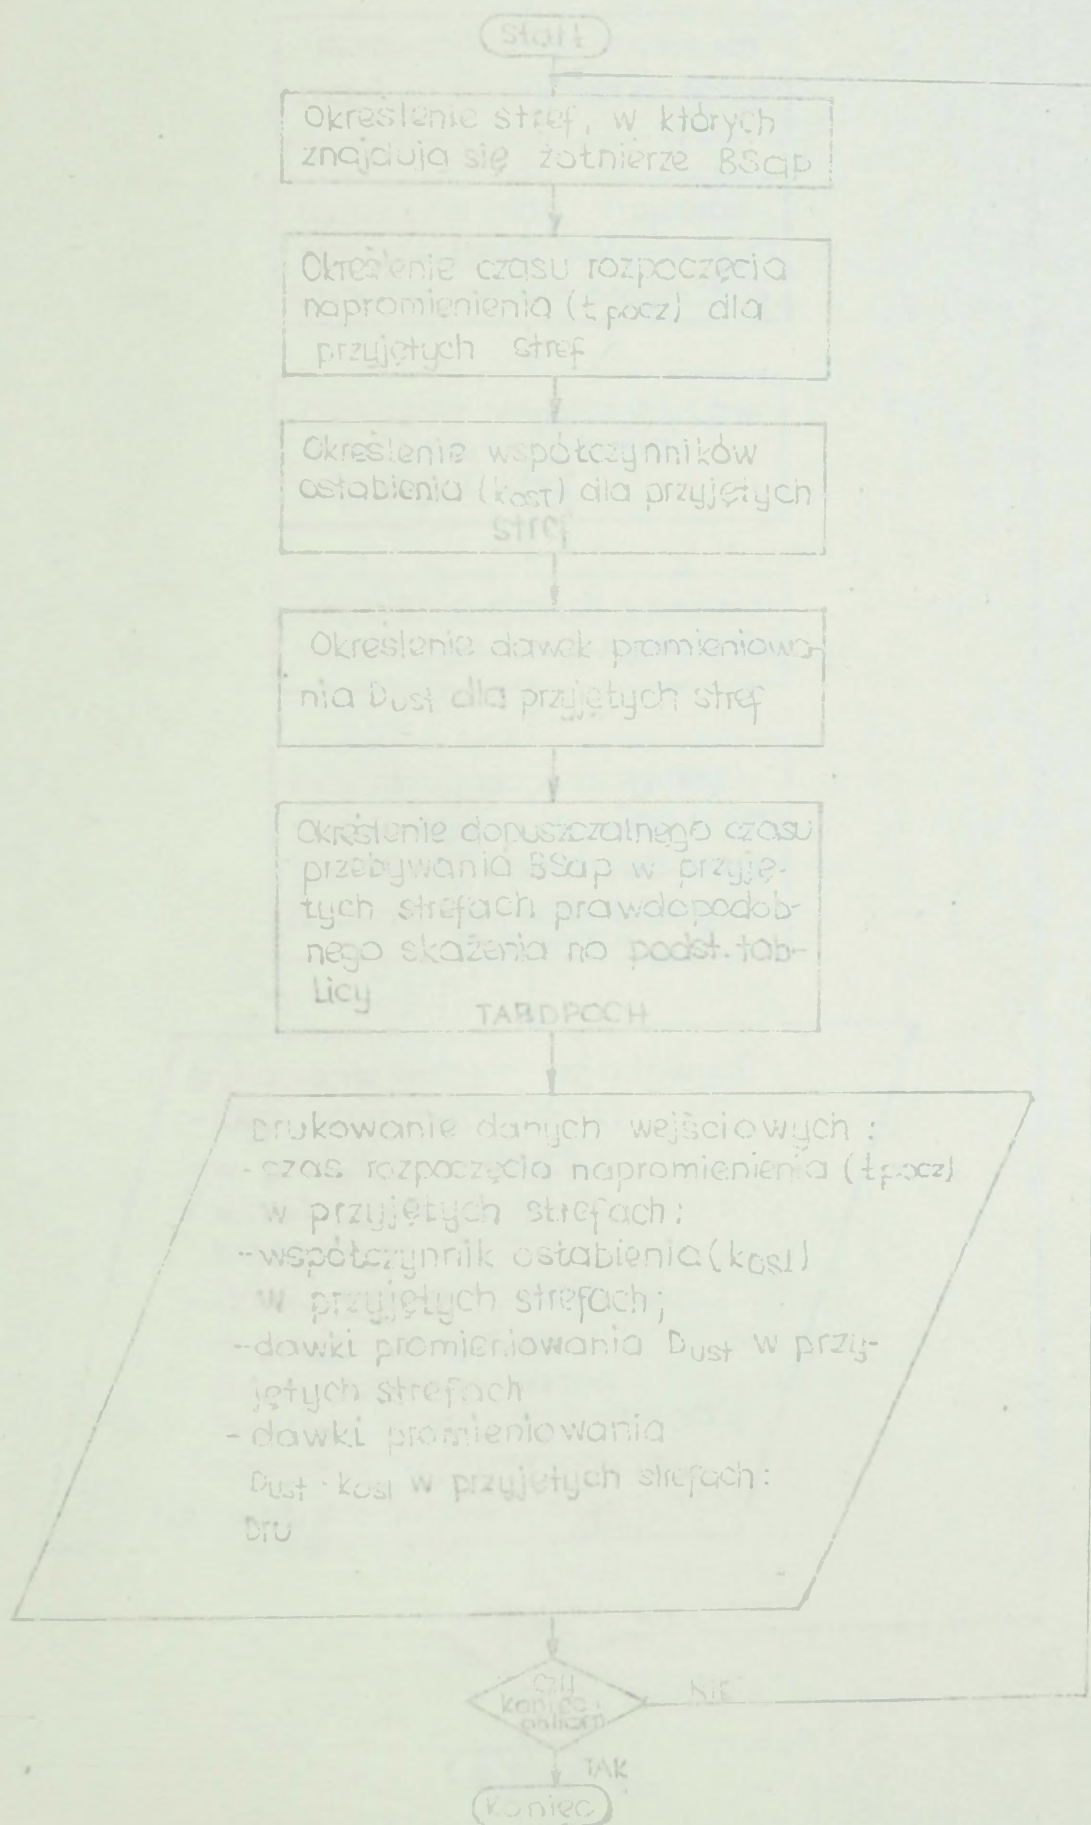 Start
Określenie stref, w których
znajdują się żołnierze BSap
Określenie czasu rozpoczęcia
napromienienia (tpocz) dla
przyjętych stref
Określenie współczynników
osłabienia (kosł) dla przyjętych
stref
Określenie dawek promieniowa
nia Dust dla przyjętych stref
Określenie dopuszczalnego czasu
przebywania BSap w przyję-
tych strefach prawdopodob-
nego skażenia na podst. tab-
licy
TABDPOCH
Drukowanie danych wejściowych:
- czas rozpoczęcia napromienienia (tpocz)
w przyjętych strefach:
- współczynnik osłabienia (kosł)
w przyjętych strefach;
- dawki promieniowania Dust w przy-
jętych strefach
- dawki promieniowania
Dust · kosł w przyjętych strefach:
Dru
czy
koniec
obliczeń
NIE
TAK
Koniec